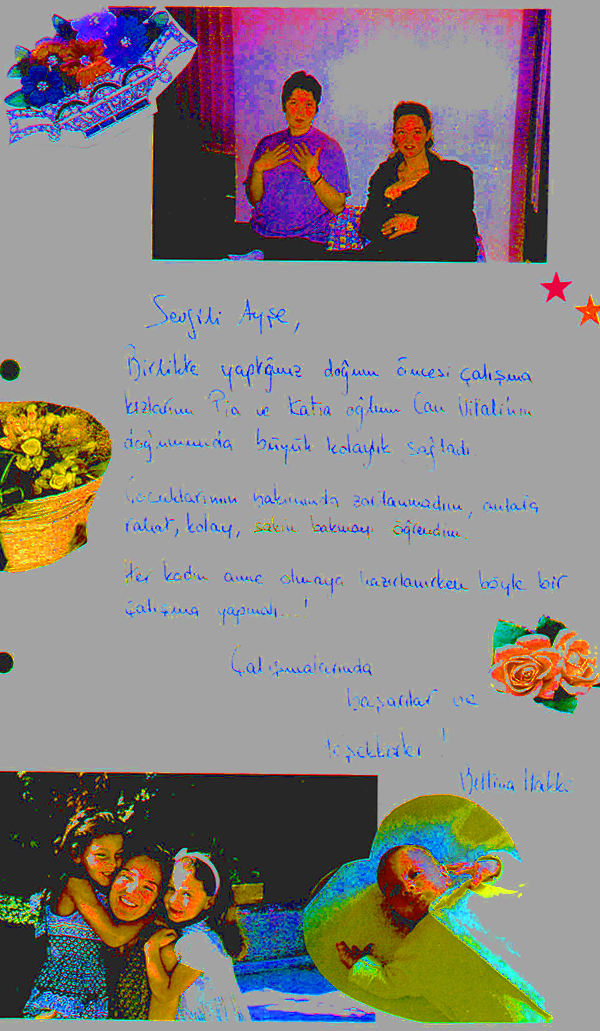 Sevgili Ayşe,
Birlikte yaptığımız doğum öncesi çalışma
kızlarım Pia ve Katia oğlum Can Vitali'nin
doğumunda büyük kolaylık sağladı.
Çocuklarımın bakımında zorlanmadım, onlara
rahat, kolay, sakin bakmayı öğrendim.
Her kadın anne olmaya hazırlanırken böyle bir
çalışma yapmalı..!
Çalışmalarınızda
başarılar ve
teşekkürler !
Bettina